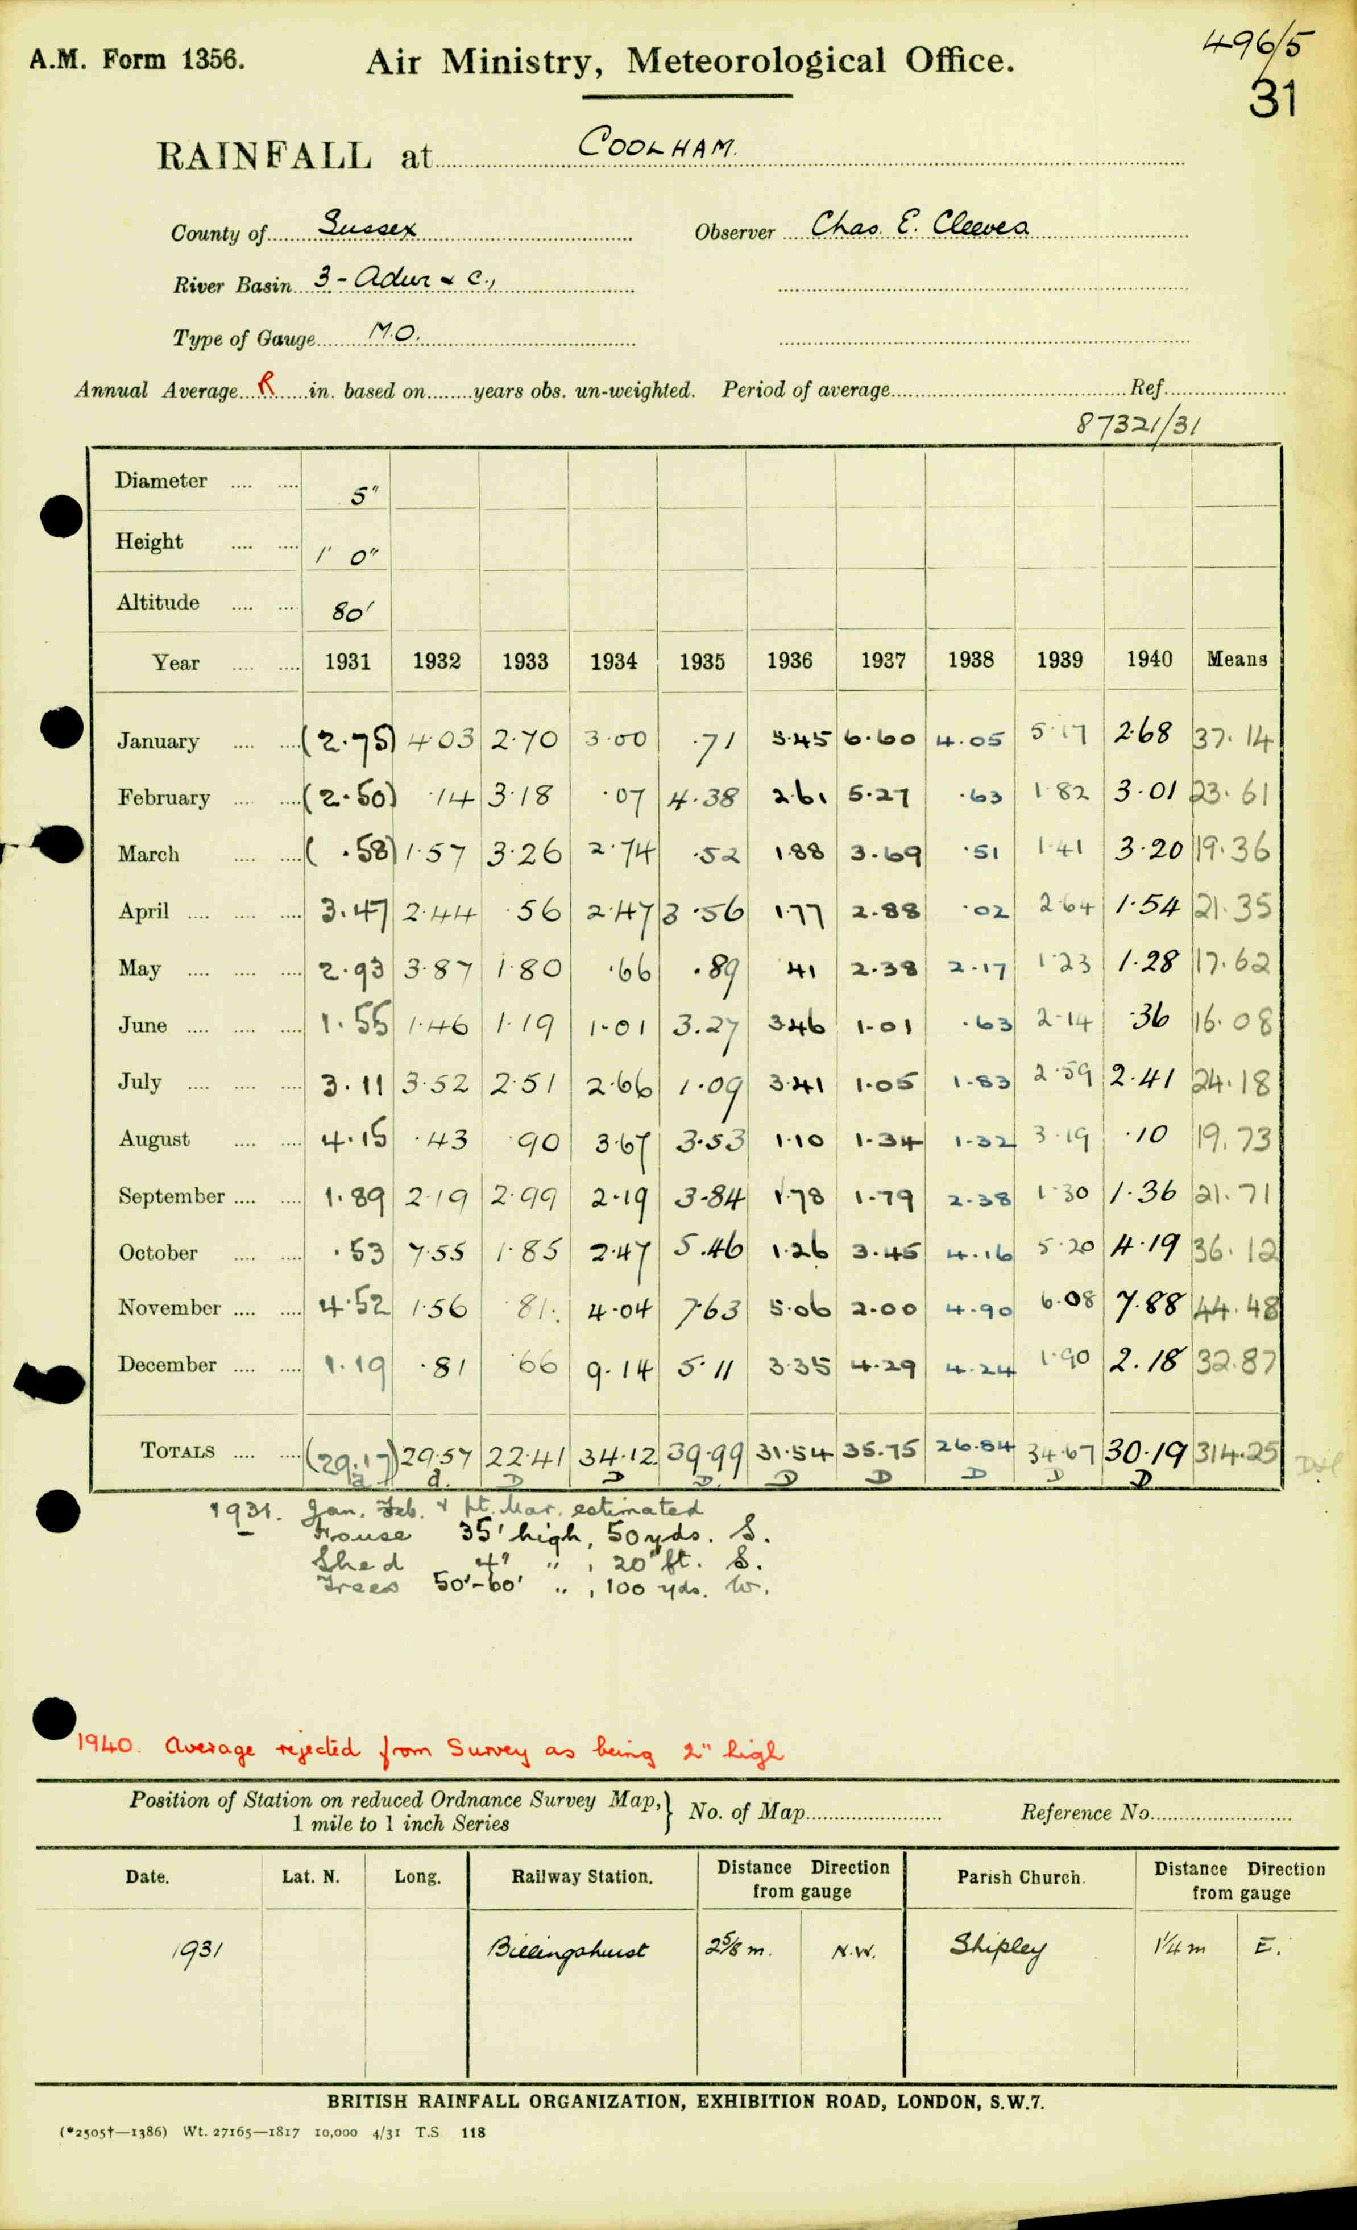 496/5
A.M. Form 1356. Air Ministry, Meteorological Office.
31
RAINFALL at COOLHAM.
County of Sussex Observer Chas. E. Cleeves
River Basin 3 - Adur & c.,
Type of Gauge M.O.
Annual Average R in. based on years obs. un-weighted. Period of average Ref.
87321/31
Diameter 5"
Height 1' 0"
Altitude 80'
Year 1931 1932 1933 1934 1935 1936 1937 1938 1939 1940 Means
January (2.75) 4.03 2.70 3.00 .71 5.45 6.60 4.05 5.17 2.68 37.14
February (2.50) .14 3.18 .07 4.38 2.61 5.27 .63 1.82 3.01 23.61
March (.58) 1.57 3.26 2.74 .52 1.88 3.69 .51 1.41 3.20 19.36
April 3.47 2.44 .56 2.47 3.56 1.77 2.88 .02 2.64 1.54 21.35
May 2.93 3.87 1.80 .66 .89 .41 2.38 2.17 1.23 1.28 17.62
June 1.55 1.46 1.19 1.01 3.27 3.46 1.01 .63 2.14 .36 16.08
July 3.11 3.52 2.51 2.66 1.09 3.41 1.05 1.83 2.59 2.41 24.18
August 4.15 .43 .90 3.67 3.53 1.10 1.34 1.32 3.19 .10 19.73
September 1.89 2.19 2.99 2.19 3.84 1.78 1.79 2.38 1.30 1.36 21.71
October .53 7.55 1.85 2.47 5.46 1.26 3.45 4.16 5.20 4.19 36.12
November 4.52 1.56 .81 4.04 7.63 5.06 2.00 4.90 6.08 7.88 44.48
December 1.19 .81 .66 9.14 5.11 3.35 4.29 4.24 1.90 2.18 32.87
TOTALS (29.17) 29.57 22.41 34.12 39.99 31.54 35.75 26.84 34.67 30.19 314.25
a d. D D D. D D D D D
1931. Jan. Feb. & pt. Mar. estimated
House 35' high, 50 yds. S.
Shed 4' " , 20 ft. S.
Trees 50'-60' " , 100 yds. W.
1940. Average rejected from Survey as being 2" high
Position of Station on reduced Ordnance Survey Map,} No. of Map Reference No.
1 mile to 1 inch Series
Date. Lat. N. Long. Railway Station. Distance Direction from gauge Parish Church. Distance Direction from gauge
1931 Billingshurst 2 5/8 m. N.W. Shipley 1 1/4 m E.
BRITISH RAINFALL ORGANIZATION, EXHIBITION ROAD, LONDON, S.W.7.
(*2505†—1386) Wt. 27165—1817 10,000 4/31 T.S 118